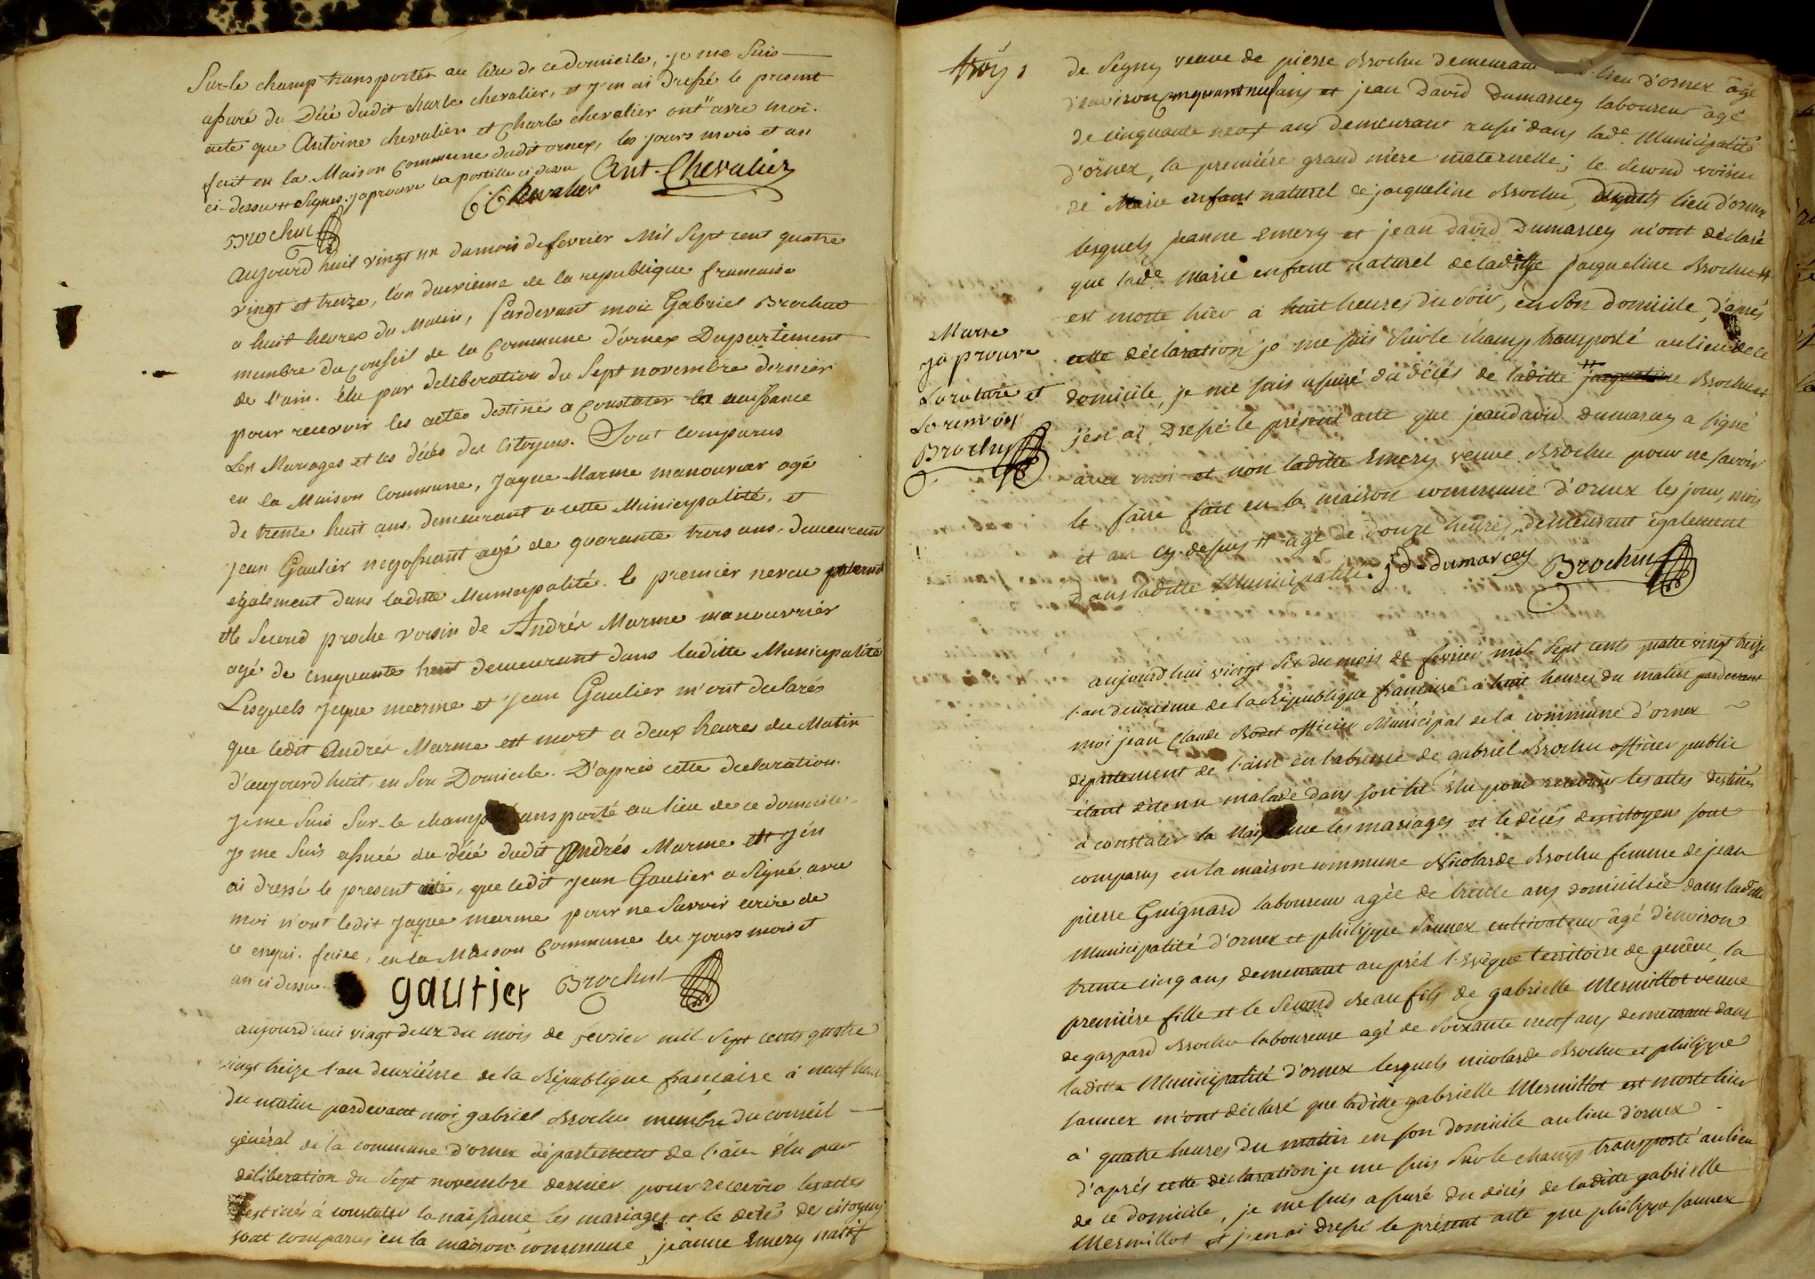 Sur-le champ transporter au lieu de ce domicile, je me suis
assuré du Déé dudit charle chevalier, et j'en ai Dressé le present
acte que Antoine chevalier et Charle chevalier ont avec moi.
fait en la Maison Commune dudit ornex, les jours mois et an
ci-dessus Signes. j'aprouve la postille ci dessu Ant. Chevalier
C Chevalier
Brochut
Aujourd huit vingt un du mois de fevrier Mil Sept cent quatre
vingt et treize, l'an deuxieme de la republique francaise
a huit heures du Matin, Pardevant moi Gabriel Brochut
membre du conseil de la Commune d'ornex Dapartement
de l'ain. élu par deliberation du Sept novembre dernier
pour recevoir les actes destiné a Constater la naissance
Les Mariages et les décés des Citoyens. Sont Comparus
en la Maison Commune, Jaque Marme manouvrier agé
de trente huit ans, demeurant a cette Municypalité, et
jean Gautier negossiant agé de quarante trois ans, demeurant
egalement dans laditte Municypalité. le premier neveu paternel
et le Second proche voisin de Andrés Marme manouvrier
agé de cinquante huit demeurant dans laditte Municypalité
Lesquels jaque marme et jean Gautier m'ont declarés
que ledit Andrés Marme est mort a deux heures du Matin
d'aujourd huit, en Son Domicile. D'aprés cette declaration
je me Suis Sur-le champ transporté au lieu de ce domicile
je me Suis assuré du déé dudit Andrés Marme et j'en
ai dressé le present acte, que ledit jean Gautier a Signé avec
moi n'ont ledit jaque marme pour ne Savoir ecrire de
ce enqui. faite, en la Maison Commune les jours mois et
an ci dessu.
gautier Brochut
aujourd'hui vingt deux du mois de fevrier mil Sept cents quatre
vingt treize l'an deuxiéme de la République francaise à neuf heures
du matin pardevant moi gabriel Brochu membre du conseil
général de la commune d'ornex département de l'ain élu par
déliberation du Sept novembre dernier pour recevoir les actes
destinés à constater la naissance les mariages et le décé des citoyens
sont comparus en la maison commune, jeanne Emery natif
trois
de Segny veuve de pierre Brochu demeurant lieu d'ornex âgé
d'environ cinquant neuf ans et jean David Dumarcey laboureur agé
de cinquante neuf ans demeurant aussi dans lade. Municipalité
d'ornex, la premiére grand mére maternelle; le Second voisin
de Marie enfant naturel de jacqueline Brochu, dudit lieu d'ornex
lesquels jeanne Emery et jean david Dumarcey m'ont déclaré
que lade. Marie enfant naturel de laditte jacqueline Brochu
est morte hier à huit heures du Soir, en Son domicile, d'aprés
cette déclaration je me suis Sur le champ transporté au lieu de ce
domicile, je me suis assuré du décés de laditte jacqueline Brochu et
j'en ai Dressé le présent acte que jean david dumarcey a signé
avec moi et non laditte Emery veuve Brochu pour ne savoir
le faire fait en la maison commune d'ornex les jour, mois
et an cy-dessus # agé de douze heures, demeurant également
Dans laditte Municipalité. jd dumarcey Brochut
Marie
j'aprouve
La rature et
Le renvois
Brochut
aujourd'hui vingt Six du mois de fevrier mil Sept cents quatre vingt treize
l'an deuxiéme de la République francaise à huit heures du matin pardevant
moi jean Claude Bodet officier Municipal de la commune d'ornex
département de l'ain en l'absence de gabriel Brochu officier public
étant détenu malade dans son lit élu pour recevoir les actes destinés
à constater la Naissance les mariages et le décés des citoyens sont
comparus en la maison commune Nicolarde Brochu femme de jean
pierre Guignard laboureur agée de trente ans domiciliée dans laditte
Municipalité d'ornex et philippe Jannex cultivateur âgé d'environ
trente cinq ans demeurant au prél l'Evêque territoire de genêve, la
premiére fille et le Second Beau fils de gabrielle Mermillot veuve
de gaspard Brochu laboureuse agé de Soixante neuf ans demeurant dans
laditte Municipalité d'ornex lesquels nicolarde Brochu et philippe
Jannex m'ont déclaré que laditte gabrielle Mermillot est morte hier
à quatre heures du matin en son domicile au lieu d'ornex
d'aprés cette déclaration je me suis Sur le champ transporté au lieu
de ce domicile, je me suis assuré du décés de laditte gabrielle
Mermillot et j'en ai dressé le présent acte que philippe Jannex